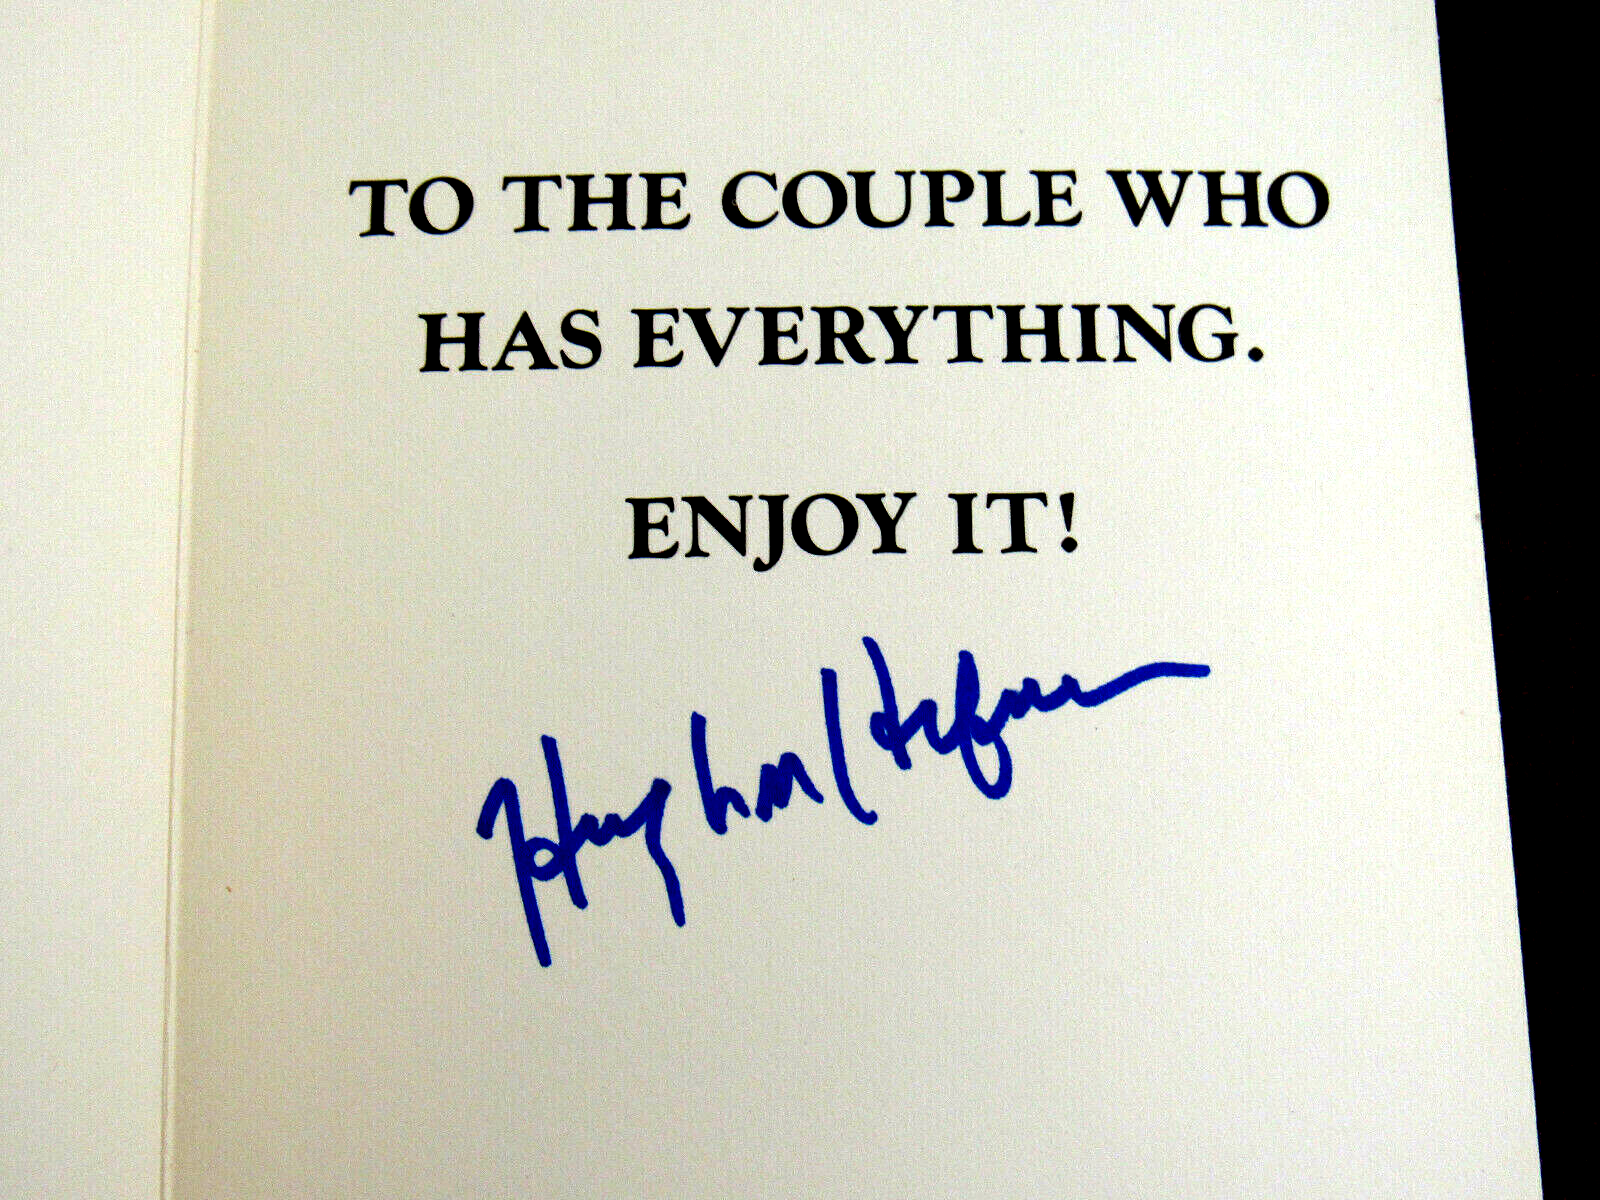 TO THE COUPLE WHO
HAS EVERYTHING.
ENJOY IT!
Hugh M Hefner